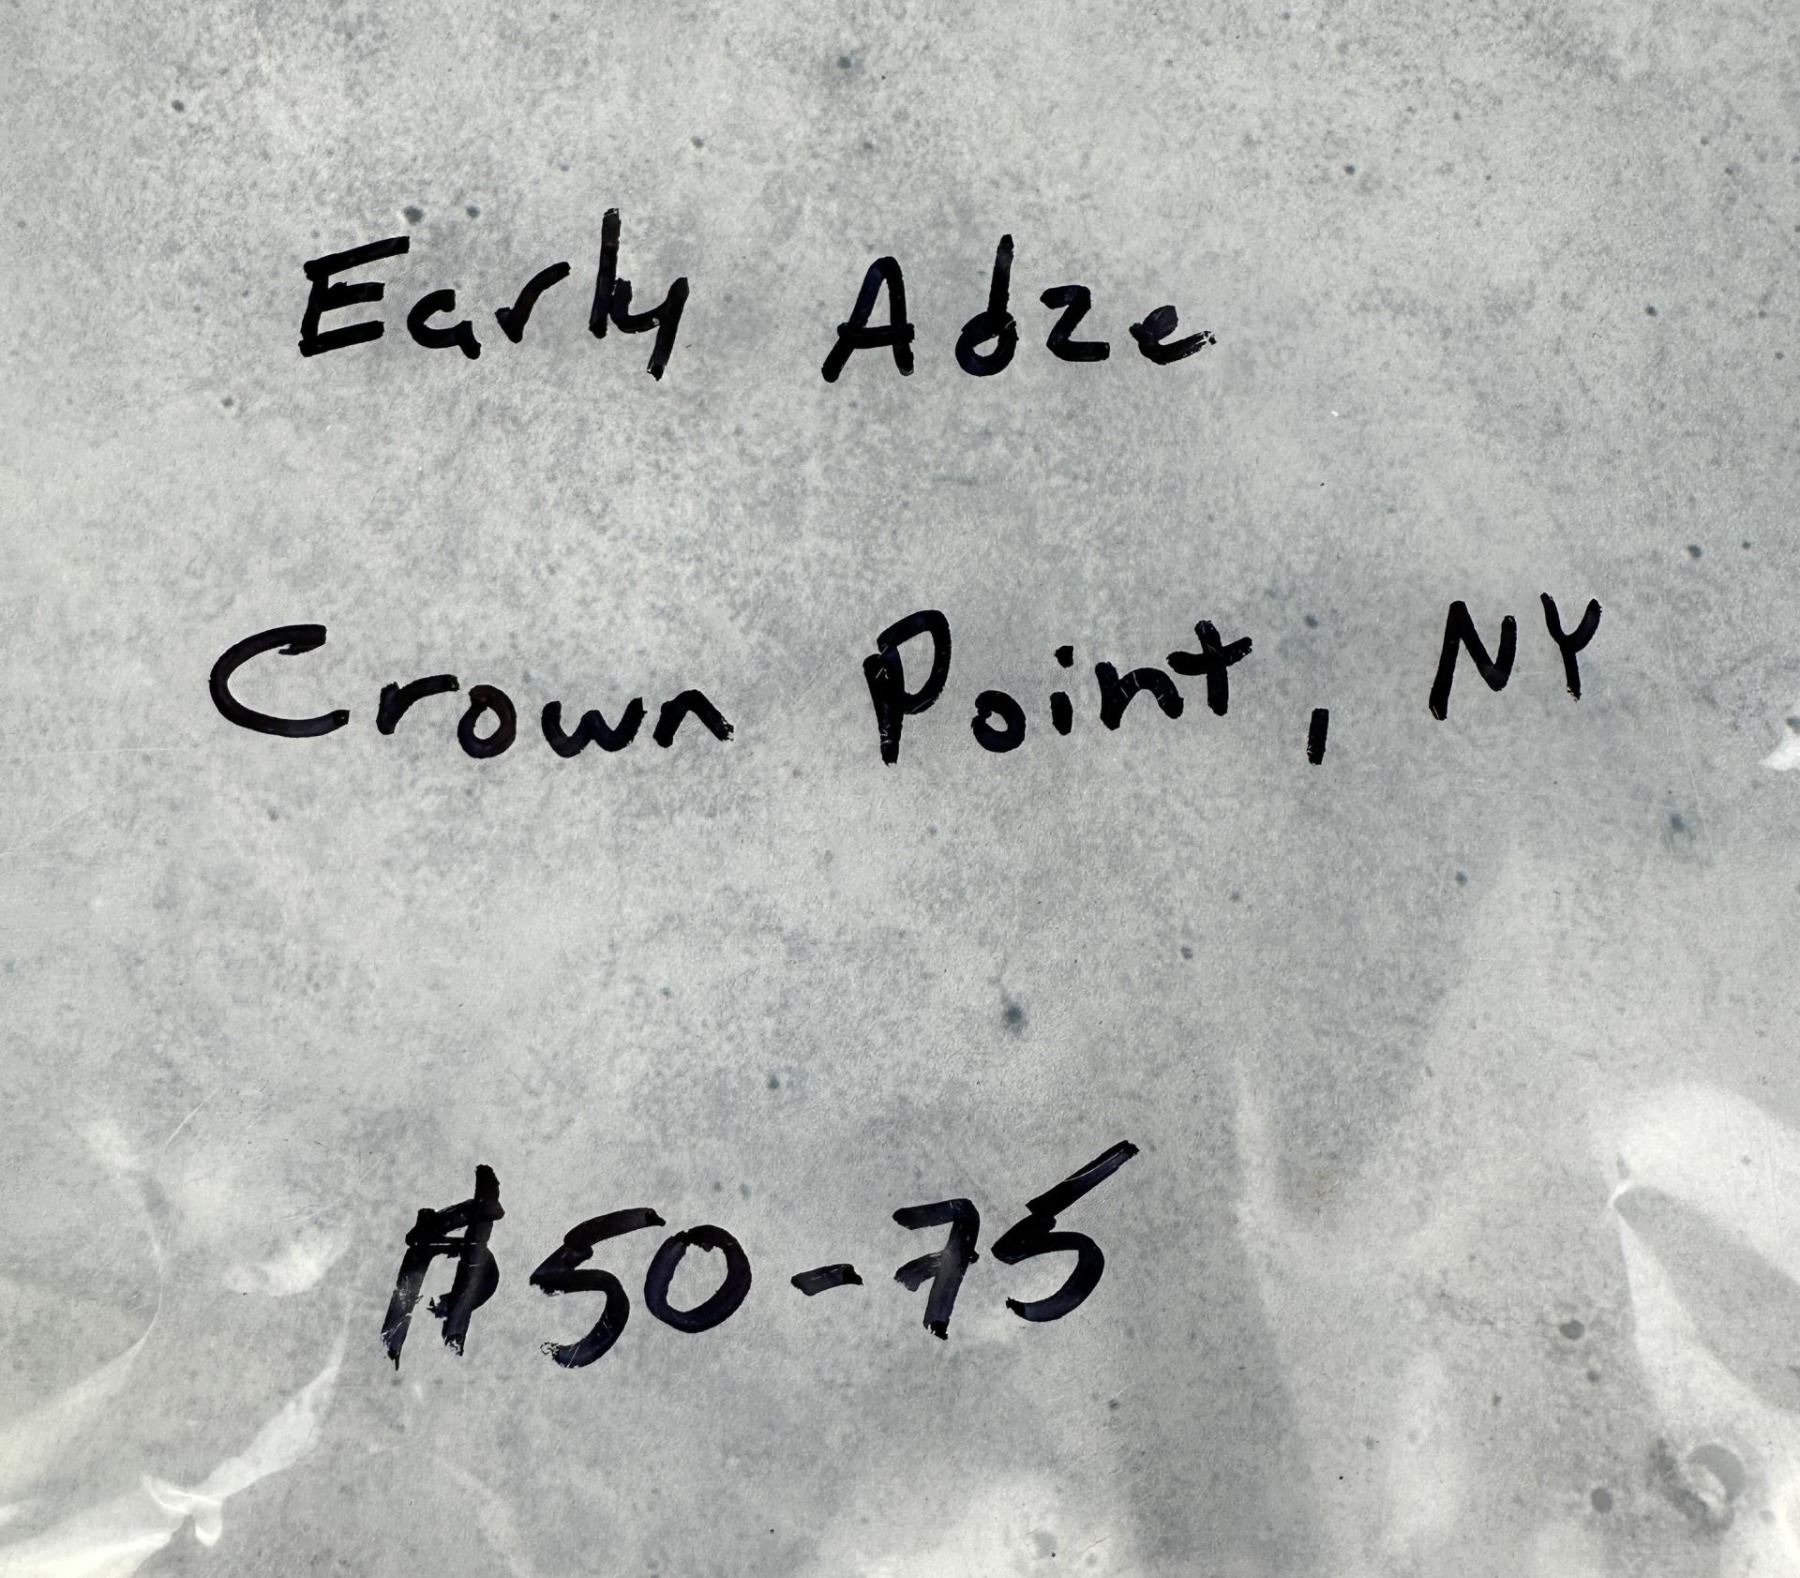 Early Adze
Crown Point, NY
$50-75